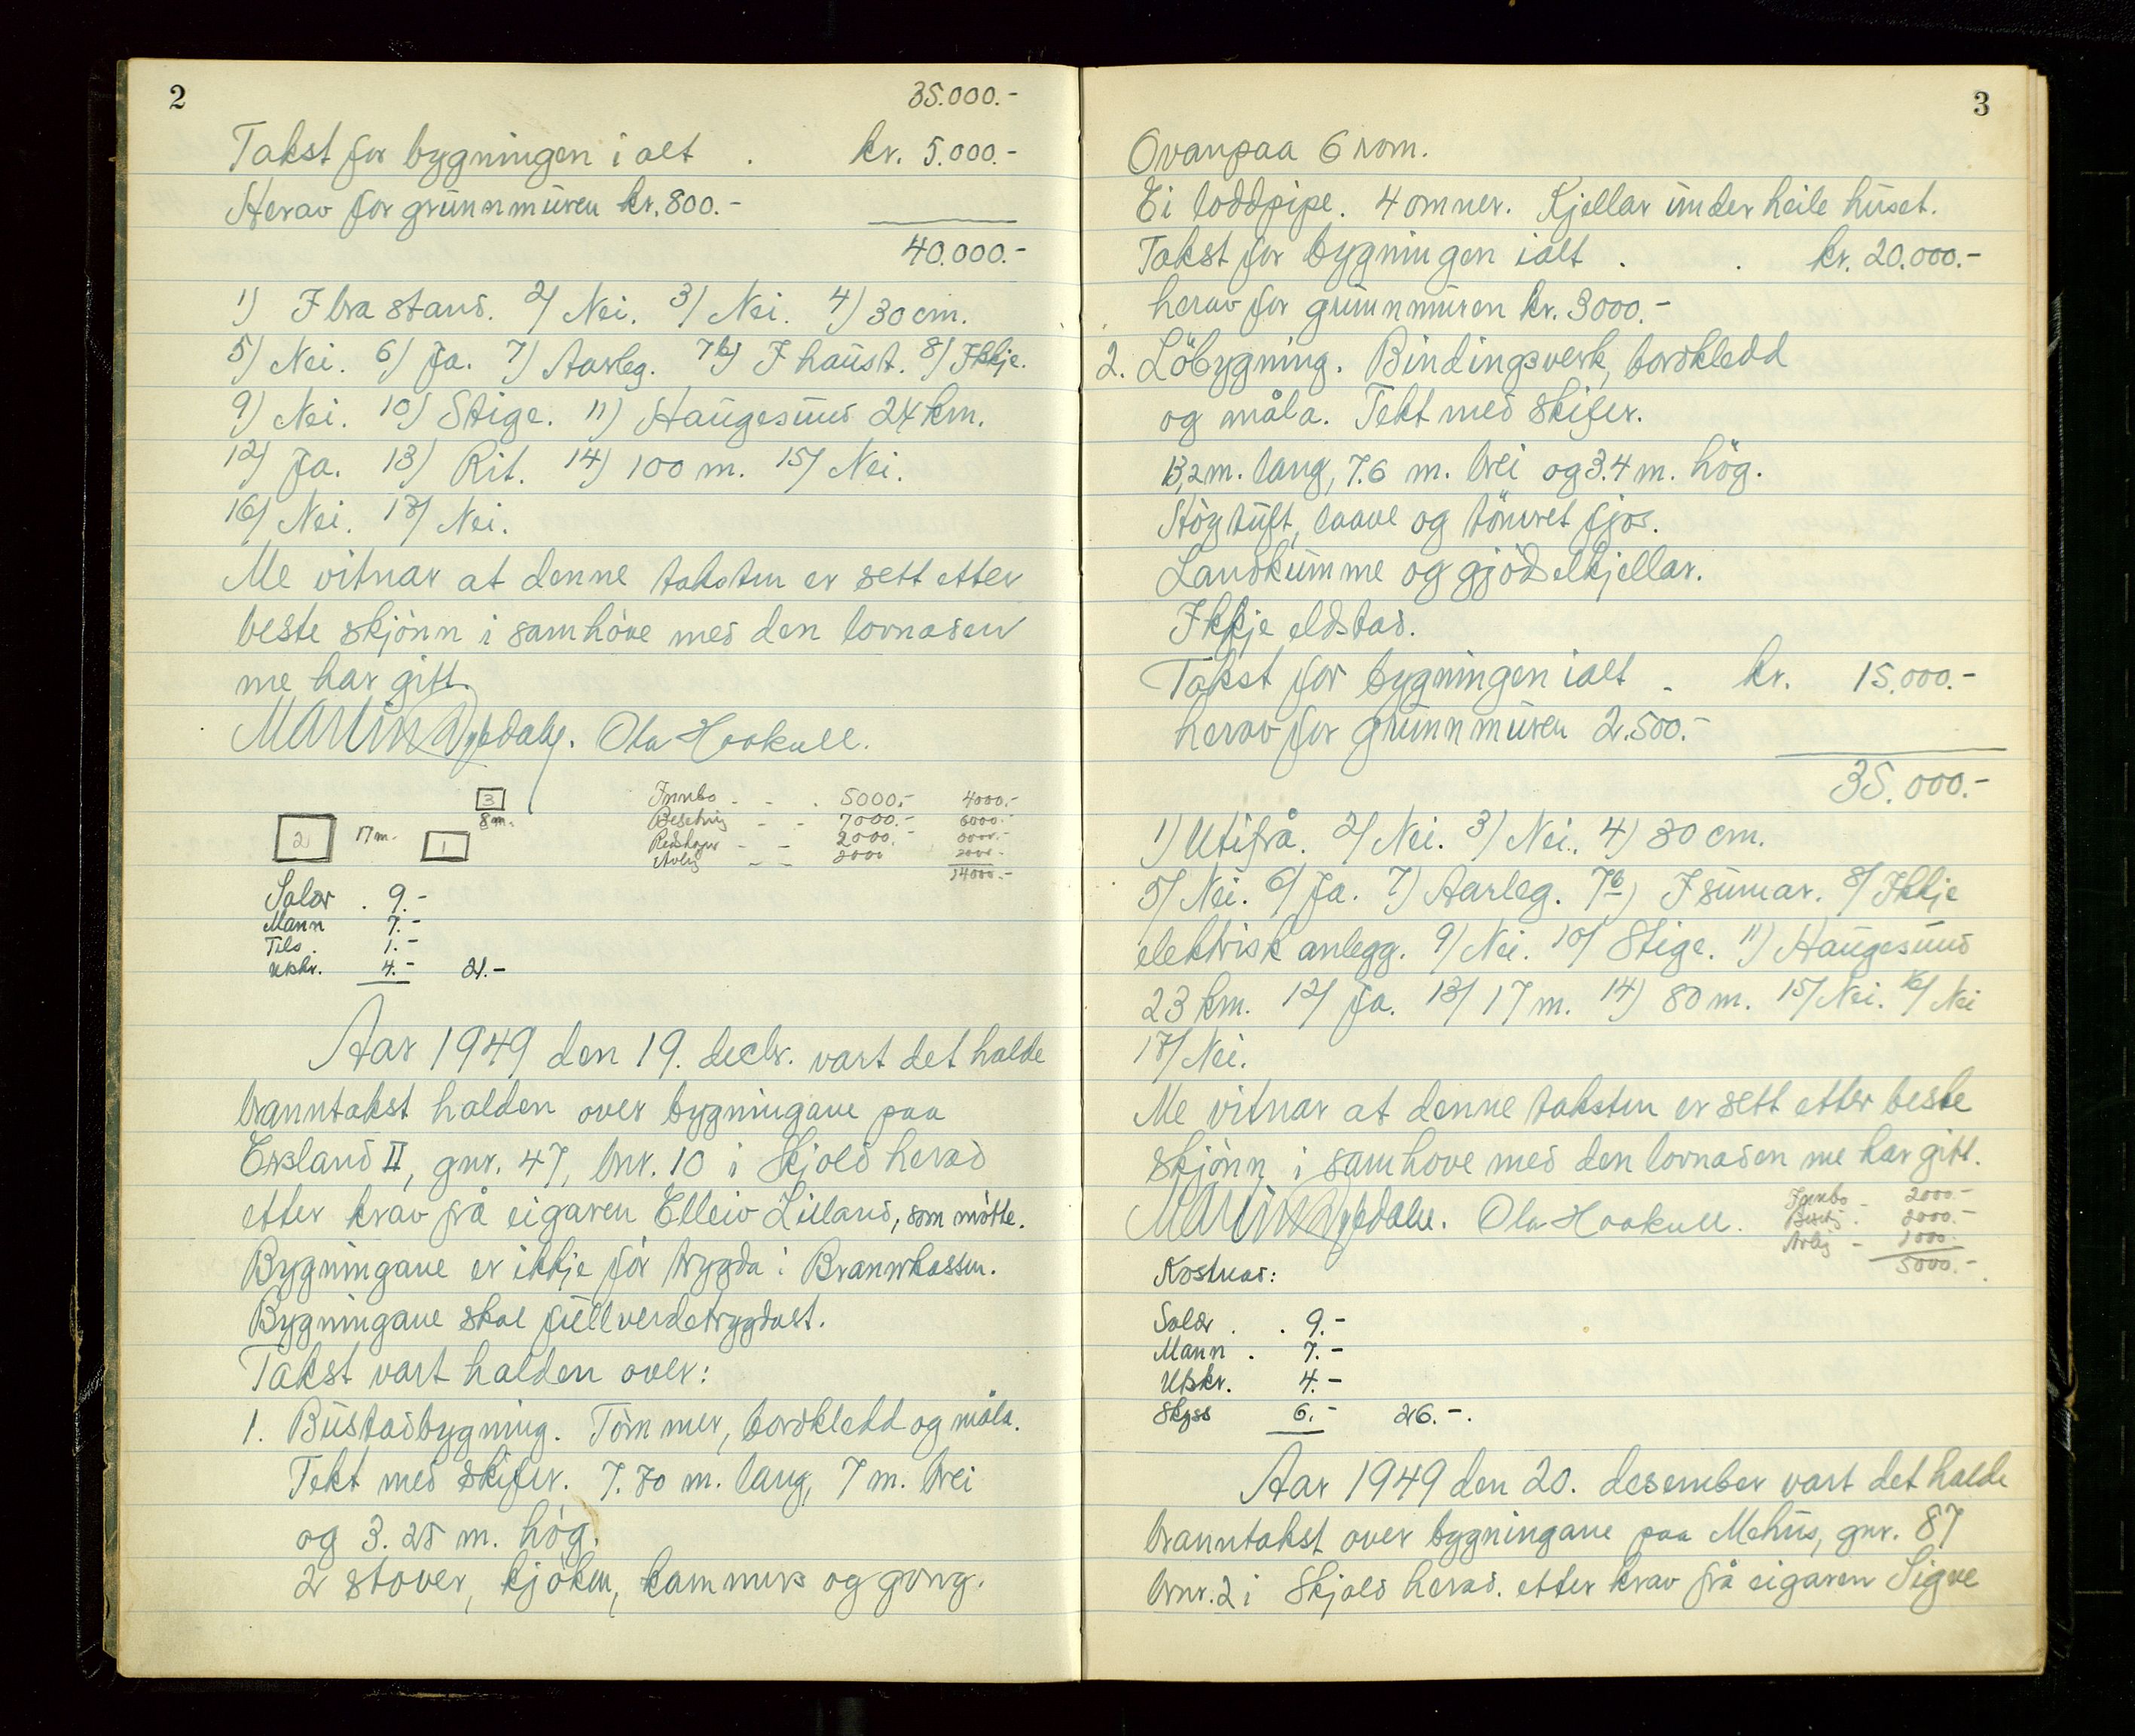 2
35.000.-
Takst for bygningen i alt . kr. 5.000.-
Herav for grunnmuren kr. 800.-
40.000.-
1) I bra stand. 2) Nei. 3) Nei. 4) 30 cm.
5) Nei. 6) Ja. 7) Aarleg. 7b) I haust. 8) Ikkje.
9) Nei. 10) Stige. 11) Haugesund 24 km.
12) Ja. 13) Rit. 14) 100 m. 15) Nei.
16) Nei. 17) Nei.
Me vitnar at denne taksten er sett etter
beste skjønn i samhøve med den lovnaden
me har gitt.
Ola Haakull.
3
8 m.
2 17 m. 1
Innbo - - . 5000,- 4000.-
7000.- 6000.-
2000.-
2000
14000.-
Salær . 9.-
Mann 7.-
Tils. 1.-
Utskr. 4.- 21.-
Aar 1949 den 19. decbr. vart det halde
branntakst halden over bygningane paa
Eksland II, gnr. 47, bnr. 10 i Skjold herad
etter krav frå eigaren Elleiv Lilland, som møtte.
Bygningane er ikkje før trygda i Brannkassen.
Bygningane skal fullverdetrygdast.
Takst vart halden over:
1. Bustadbygning. Tømmer, bordkledd og måla.
Tekt med skifer. 7.70 m. lang, 7 m. brei
og 3.25 m. høg.
2 stover, kjøken, kammers og gong.
3
Ovanpaa 6 rom.
Ei loddpipe. 4 omner. Kjellar under heile huset.
Takst for bygningen ialt . . kr. 20.000.-
herav for grunnmuren kr. 3000.-
2. Löbygning. Bindingsverk, bordkledd
og måla. Tekt med skifer.
13,2 m. lang, 7.6 m. brei og 3.4 m. hög.
Högtuft, laave og tömret fjos.
Landkumme og gjödselkjellar.
Ikkje eldstad.
Takst for bygningen ialt - kr. 15.000.-
herav for grunnmuren 2.500.-
35.000.-
1) Utifrå. 2) Nei. 3) Nei. 4) 30 cm.
5) Nei. 6) Ja. 7) Aarleg. 7b) I sumar. 8) Ikkje
elektrisk anlegg. 9) Nei. 10) Stige. 11) Haugesund
23 km. 12) Ja. 13) 17 m. 14) 80 m. 15) Nei. 16) Nei
17) Nei.
Me vitnar at denne taksten er sett etter beste
skjønn i samhove med den lovnaden me har gitt.
Ola Haakull.
Innbo - 2000.-
2000.-
1000.-
5000.-
Kostnad:
Salær . . 9.-
Mann . 7.-
Utskr. 4.-
Skyss 6.- 26.-.
Aar 1949 den 20. desember vart det halde
branntakst over bygningane paa Mehus, gnr. 87
bnr. 2 i Skjold herad. etter krav frå eigaren Signe